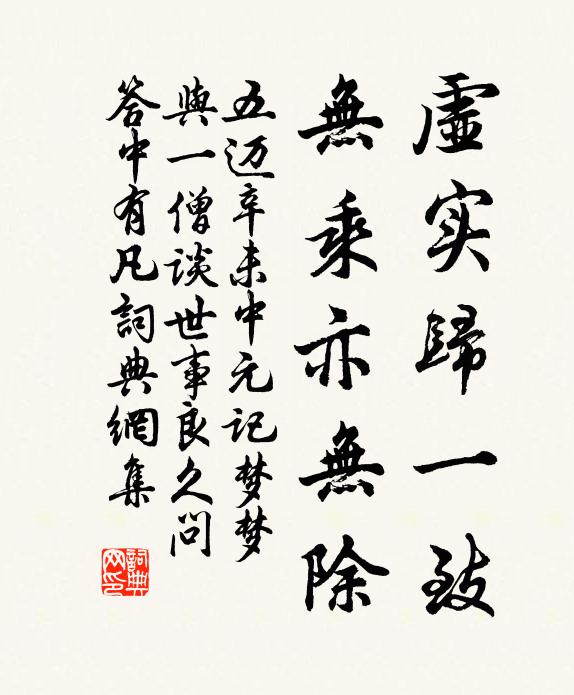 虛实歸一致
無乘亦無除
五迈辛未中元记梦梦
與一僧談世事良久問
答中有凡詞典網集
詞典网印